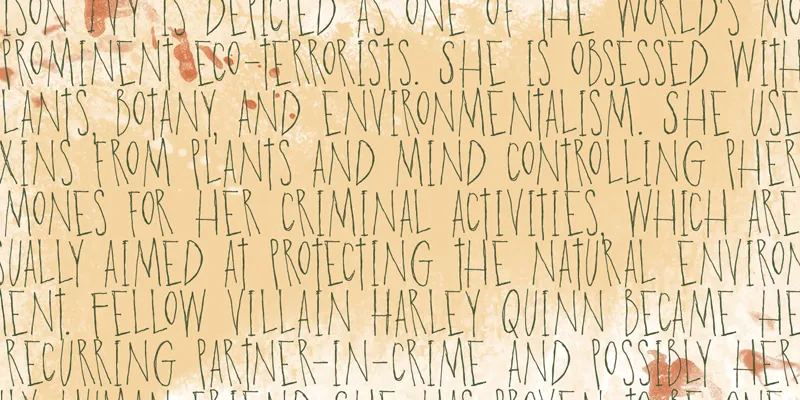 ISON IVY IS DEPICTED AS ONE OF THE WORLD'S MO
PROMINENT ECO-TERRORISTS. SHE IS OBSESSED WITH
LANTS, BOTANY, AND ENVIRONMENTALISM. SHE USE
XINS FROM PLANTS AND MIND CONTROLLING PHER
MONES FOR HER CRIMINAL ACTIVITIES, WHICH ARE
SUALLY AIMED AT PROTECTING THE NATURAL ENVIRON
MENT. FELLOW VILLAIN HARLEY QUINN BECAME HE
RECURRING PARTNER-IN-CRIME AND POSSIBLY HER
LY HUMAN FRIEND. SHE HAS PROVEN TO BE ONE